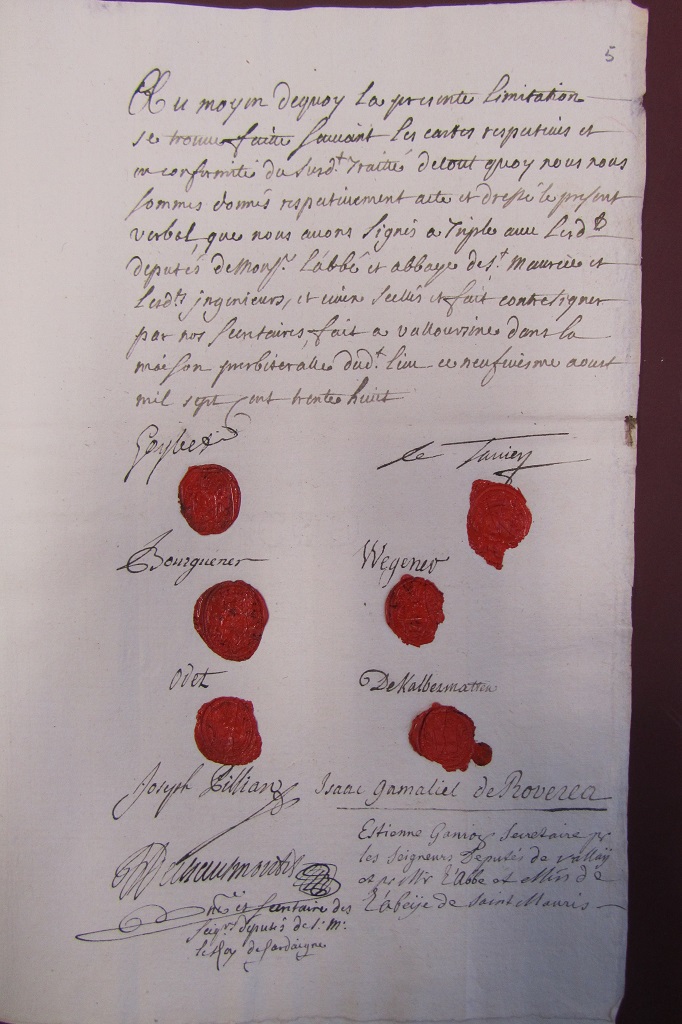 5
Au moyen dequoy La presente Limitation
se trouve faitte suivant les cartes respectives et
en conformité du susd.t Traitté detout quoy nous nous
sommes donnés respectivement acte et dressé le present
verbal, que nous avons signés a Triple avec Lesd.s
deputés de Mons.r L'abbé et abbaye de S.t Maurice et
Lesd.ts jngenieurs, et iceux scellés et fait contresigner
par nos secretaires, fait a vallourzine dans la
maison presbiteralle dud.t Lieu ce neufvieme aoust
mil sept cent trente huit
Bourguener
Wegener
Odet
DeKalbermatten
Joseph Lillian
Isaac gamaliel de Roverea
Estienne Ganioz secretaire pr
les seigneurs Deputés de vallay
et pr Mr L'abbe et Mrs de
L'abeÿe de Saint Mauris
et secretaire des
seigrs deputés de S. M.
le Roy de sardaigne